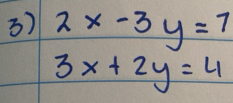 3) 2x - 3y = 7
3x + 2y = 4